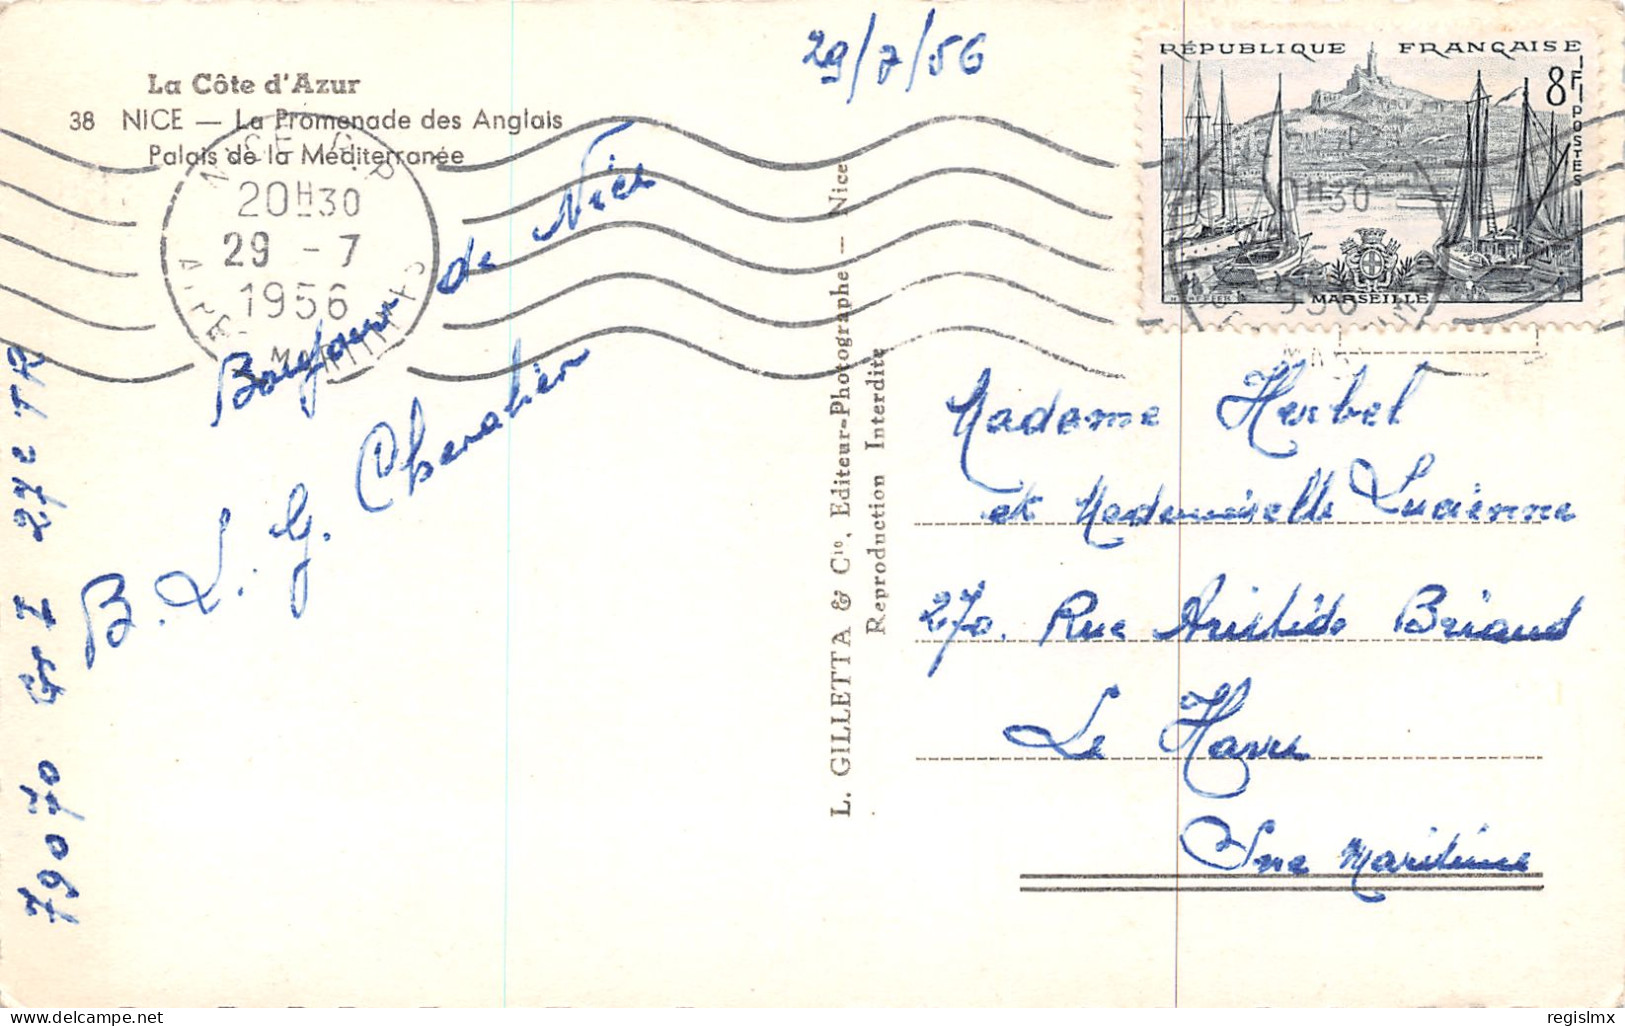 29/7/56
La Côte d'Azur
38 NICE — La Promenade des Anglais
Palais de la Méditerranée
NICE GP
20H30
29 - 7
1956
ALPES MARITIMES
Bonjour de Nice
B. L. G. Chevalier
79070 GS I 27e TR
L. GILLETTA & Cie, Editeur-Photographe — Nice
Reproduction Interdite
RÉPUBLIQUE FRANÇAISE
8F
POSTES
MARSEILLE
20H30
956
Madame Herbel
et Mademoiselle Lucienne
270. Rue Aristide Briand
Le Havre
Sne Maritime
delcampe.net
regislmx